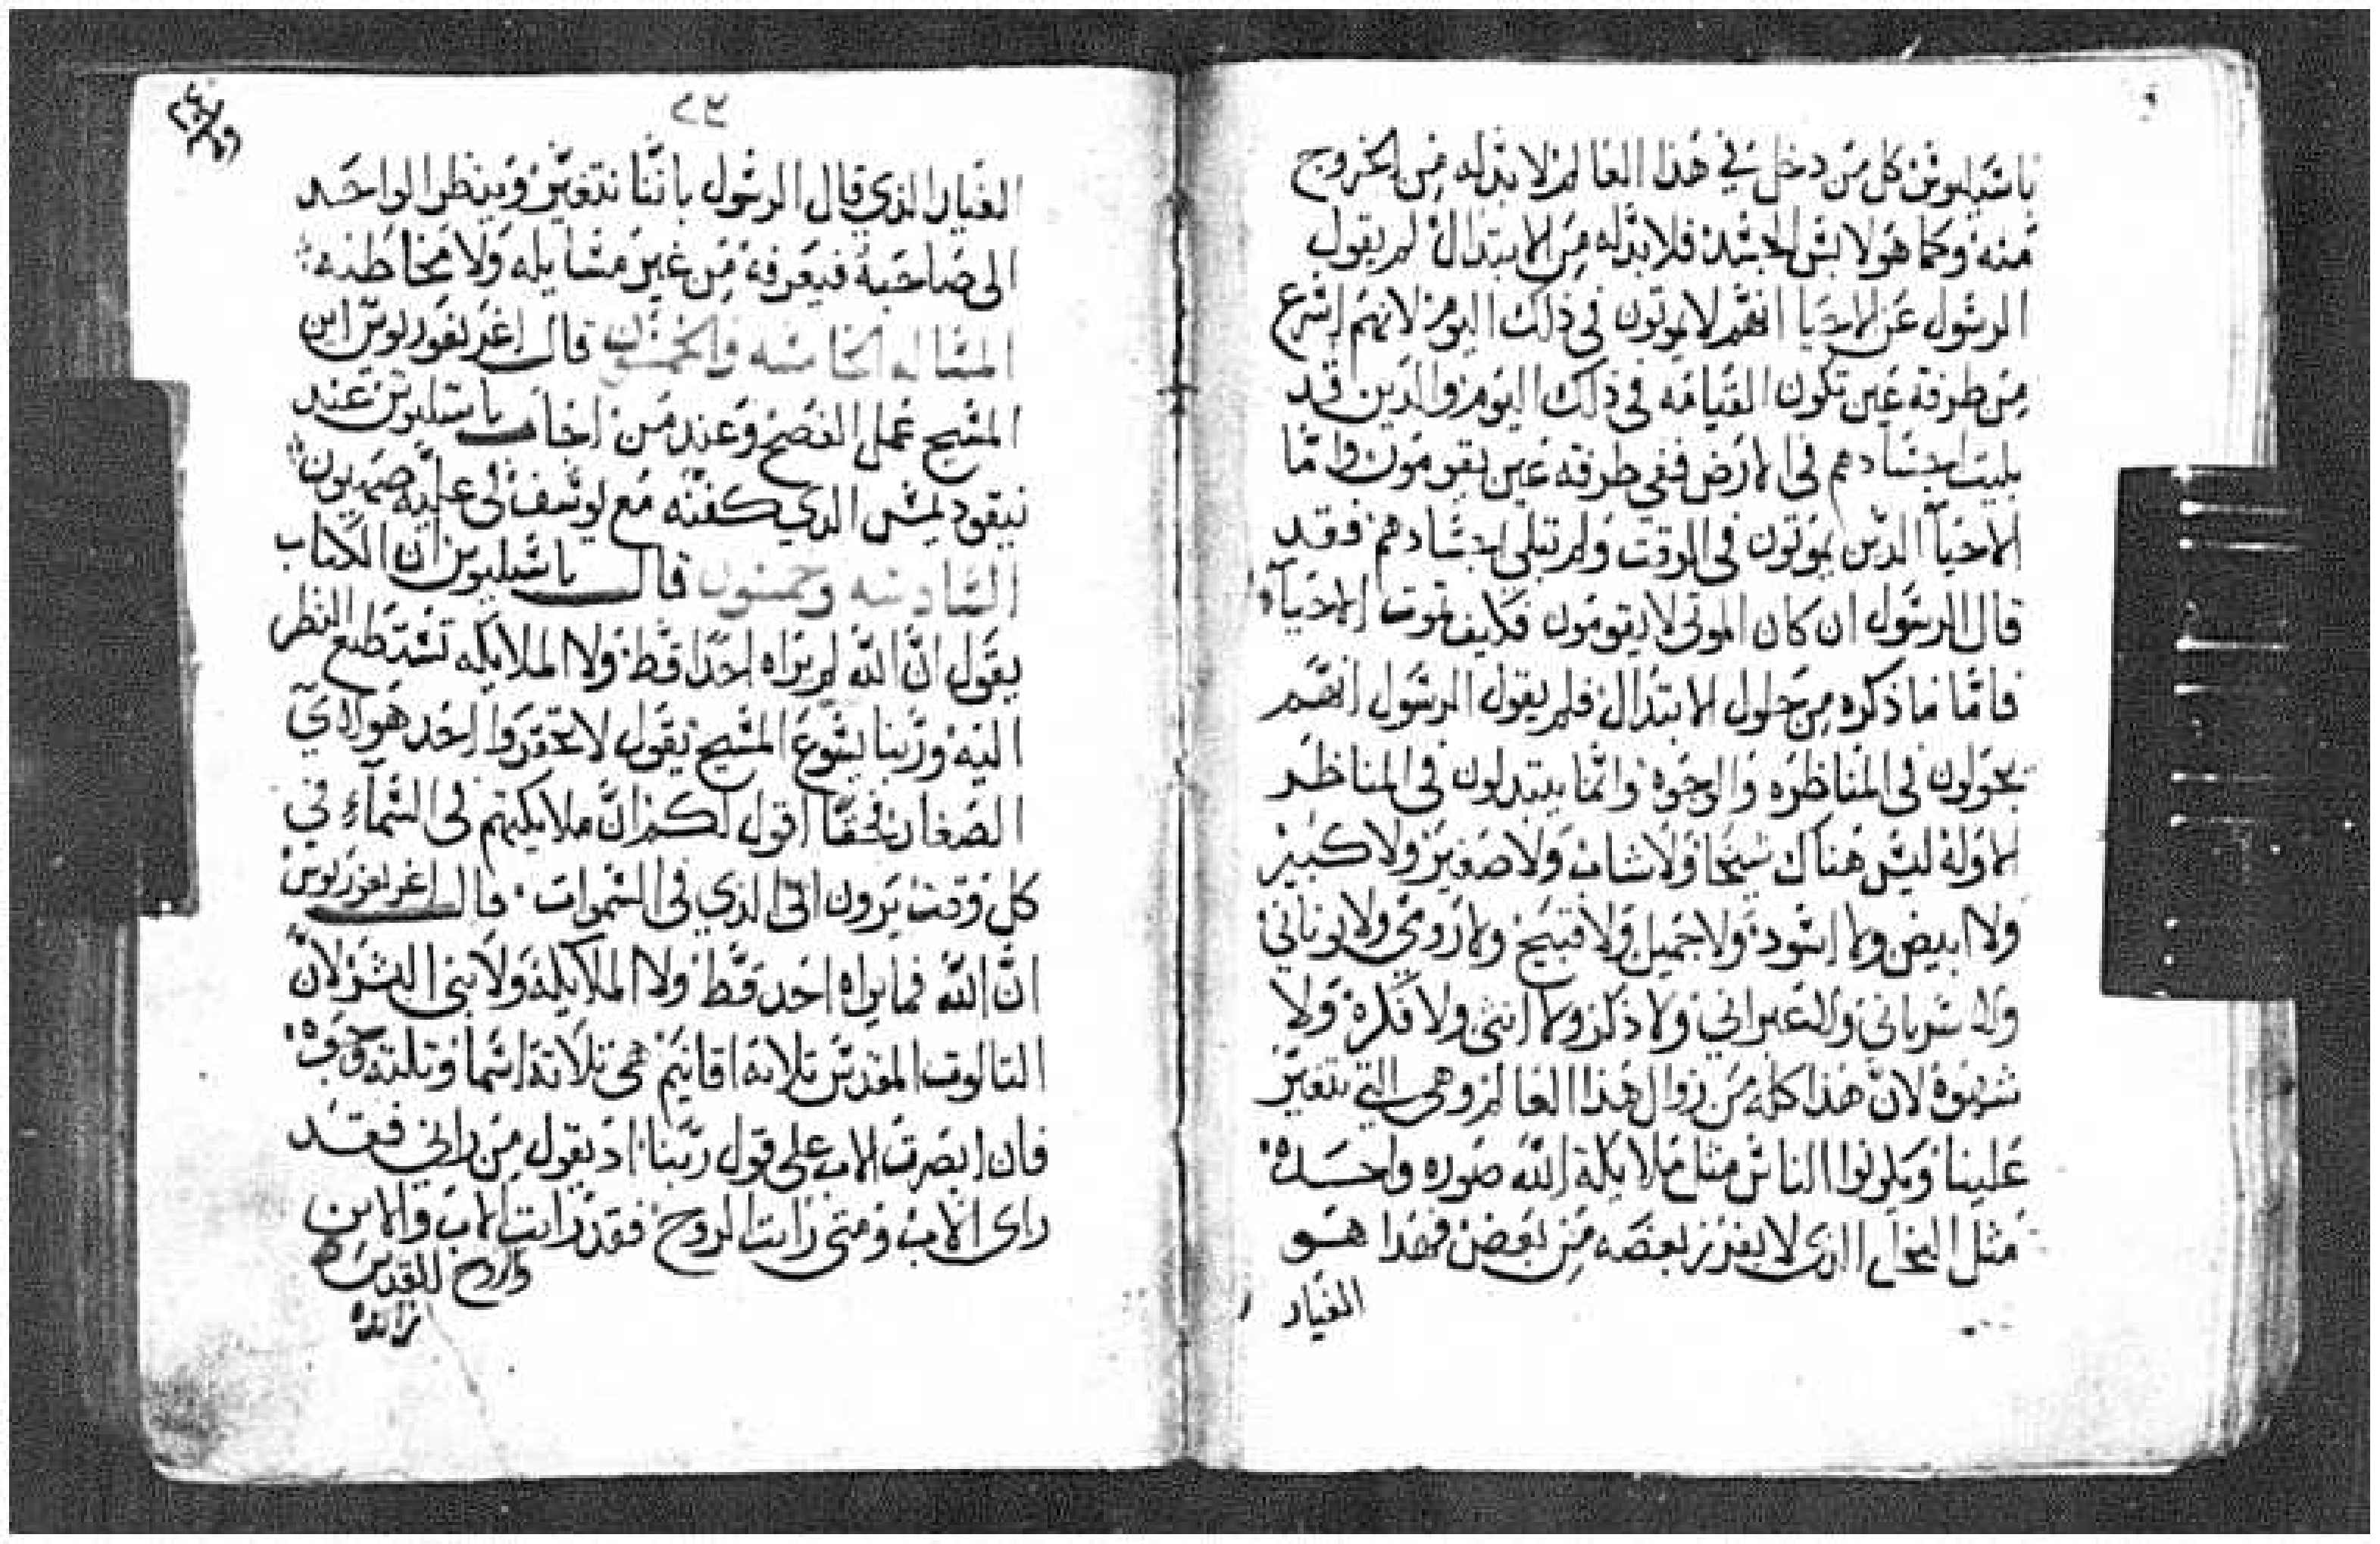 باسيليوس كل من دخل في هذا العالم لا بد له من الخروج
منه وكما هو لابس الجسد فلا بد له من الابتدال لم يقول
الرسول عن الاحيا انهم لا يموتون في ذلك اليوم لانهم اسرع
من طرفة عين تكون القيامه في ذلك اليوم والدين قد
بليت اجسادهم في الارض ففي طرفه عين يقومون واما
الاحيآ الدين يموتون في الوقت ولم تبلي اجسادهم فقد
قال الرسول ان كان الموتى لا يقومون فكيف تموت الاحيآء
فاما ما ذكره من حلول الابتدال فلم يقول الرسول انهم
يحولون في المناظره والوجوه وانما يبتدلون في المناظر
الاوله ليس هناك شيخا ولا شاب ولا صغير ولا كبير
ولا ابيض ولا اسود ولا جميل ولا قبيح ولا رومى ولا يوناني
ولا سرياني ولا عبراني ولا ذكر ولا انثى ولا فكره ولا
شهوة لان هذا كله من زوال هذا العالم وهى التي تتغير
علينا ويكونوا الناس مثل ملايكة الله صوره واحده
مثل النحل الذى لا يفرز بعضه من بعض فهذا هو
الغيار
٢٣
الغيار الذي قال الرسول باننا نتغير وينظر الواحد
الى صاحبه فيعرفه من غير مسايله ولا مخاطبه
المساله الخامسه والخمسون قال اغريغوريوس اين
المسيح عمل الفصح وعند من اجاب باسليوس عند
نيقوديمس الدي كفنه مع يوسف في علية صهيون
السادسه وخمسون قال باسيليوس ان الكتاب
يقول ان الله لم يراه احدا قط ولا الملايكه تستطيع النظر
اليه وربنا يسوع المسيح يقول لا تحقروا احد هولاي
الصغار فحقا اقول لكم ان ملايكتهم في السمآء في
كل وقت يرون ابى الذي في السموات قال اغريغوريوس
ان الله فما يراه احد قط ولا الملايكة ولا بنى البشر لان
التالوت المقدس تلاتة اقانيم هي تلاتة اسما وتلته وجوه
فان ابصرت الاب على قول ربنا اد يقول من راني فقد
راى الاب ومتى رايت الروح فقد رايت الاب والابن
واروح القدس